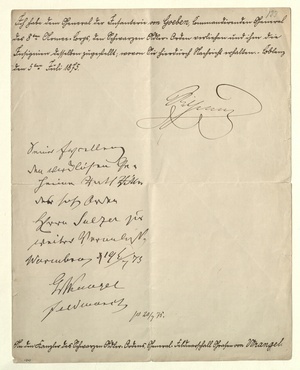 Ich habe dem General der Infanterie von Goeben, kommandirenden General
des 8ten Armee-Corps, den Schwarzen Adler-Orden verliehen und ihm die
Insignien desselben zugestellt, wovon Sie hierdurch Nachricht erhalten. Coblenz
den 5ten Juli 1873.
Wilhelm
Seiner Excellenz
dem Ge-
heimen
des Orden
Herrn zu
weiter
Warmbrunn 19/7 73
GvWrangel
Feldmarschl
An den Kanzler des Schwarzen Adler-Ordens General-Feldmarschall Grafen von Wrangel